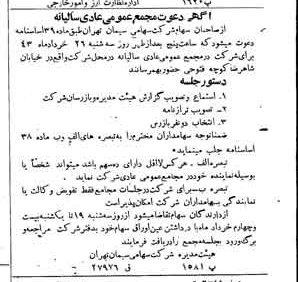 اداره نظارت ارز وامورخارجی
آگهی دعوت مجمع عمومی عادی سالیانه
از صاحبان سهام شرکت سهامی سیمان تهران طبق ماده ۳۹ اساسنامه
دعوت میشود که ساعت پنج بعدازظهر روز سه شنبه ۲۶ خرداد ماه ۴۳
برای شرکت در مجمع عمومی عادی سالیانه در محل شرکت واقع در خیابان
شاهرضا کوچه فتوحی حضور بهمرسانند
دستور جلسه
۱- استماع و تصویب گزارش هیئت مدیره و بازرسان شرکت
۲- تصویب ترازنامه
۳- انتخاب دو نفر بازرس
ضمنا توجه سهامداران محترم را به تبصره های الف و ب ماده ۳۸
اساسنامه جلب مینماید
تبصره الف- هر کس لااقل دارای ده سهم باشد میتواند شخصاً یا
بوسیله نماینده خود در مجامع عمومی عادی شرکت نماید
تبصره ب- برای شرکت در جلسات مجامع فقط تفویض وکالت یا
نمایندگی بسهامداران شرکت امکان پذیر است
از دارندگان سهام تقاضا میشود از روز سه شنبه ۱۹ تا یکشنبه بیست
و چهارم خرداد ماه با در دست داشتن عین اوراق سهام خود بدفتر شرکت مراجعه و
برگه ورود بجلسه مجمع را دریافت فرمایند
هیئت مدیره شرکت سهامی سیمان تهران
پ ۱۵۸۱ ف ۲۷۹۷۶